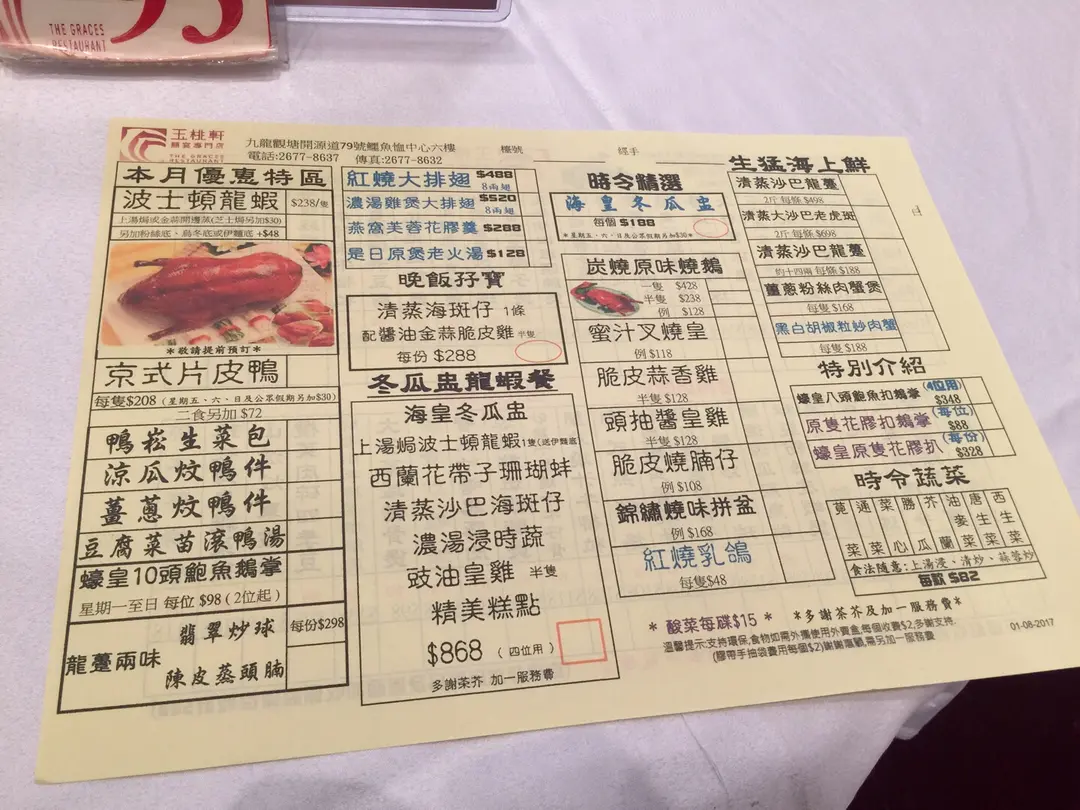 THE GRACES
RESTAURANT
玉桃軒
囍宴專門店
THE GRACES
RESTAURANT
九龍觀塘開源道79號鱷魚恤中心六樓
電話:2677-8637 傳真:2677-8632
檯號
經手
日
本月優惠特區
波士頓龍蝦 $238/隻
上湯焗或金蒜開邊蒸(芝士焗另加$30)
另加粉絲底、烏冬底或伊麵底 +$48
*敬請提前預訂*
京式片皮鴨
每隻$208 (星期五、六、日及公眾假期另加$30)
二食另加 $72
鴨崧生菜包
涼瓜炆鴨件
薑蔥炆鴨件
豆腐菜苗滾鴨湯
蠔皇10頭鮑魚鵝掌
星期一至日 每位 $98 (2位起)
龍躉兩味
翡翠炒球
陳皮蒸頭腩
每份$298
紅燒大排翅 $488
8兩翅
濃湯雞煲大排翅 $520
8兩翅
燕窩芙蓉花膠羹 $288
是日原煲老火湯 $128
晚飯孖寶
清蒸海斑仔 1條
配醬油金蒜脆皮雞 半隻
每份 $288
冬瓜盅龍蝦餐
海皇冬瓜盅
上湯焗波士頓龍蝦 1隻(送伊麵底)
西蘭花帶子珊瑚蚌
清蒸沙巴海斑仔
濃湯浸時蔬
豉油皇雞 半隻
精美糕點
$868 (四位用)
多謝茶芥 加一服務費
時令精選
海皇冬瓜盅
每個 $188
*星期五、六、日及公眾假期另加$30*
炭燒原味燒鵝
一隻 $428
半隻 $238
例 $128
蜜汁叉燒皇
例 $118
脆皮蒜香雞
半隻 $128
頭抽醬皇雞
半隻 $128
脆皮燒腩仔
例 $108
錦繡燒味拼盆
例 $168
紅燒乳鴿
每隻$48
生猛海上鮮
清蒸沙巴龍躉
2斤 每條 $498
清蒸大沙巴老虎斑
2斤 每條 $698
清蒸沙巴龍躉
約十四兩 每條 $188
薑蔥粉絲肉蟹煲
每隻 $168
黑白胡椒粒炒肉蟹
每隻 $188
特別介紹
蠔皇八頭鮑魚扣鵝掌 (4位用) $348
原隻花膠扣鵝掌 (每位) $88
蠔皇原隻花膠扒 (每份) $328
時令蔬菜
莧菜
通菜
菜心
勝瓜
芥蘭
油麥菜
唐生菜
西生菜
食法隨意:上湯浸、清炒、蒜蓉炒
每款 $82
* 酸菜每碟$15 * *多謝茶芥及加一服務費*
溫馨提示:支持環保,食物如需外攜使用外賣盒,每個收費$2,多謝支持.
(膠帶手抽袋費用每個$2)謝謝惠顧,需另加一服務費
01-08-2017